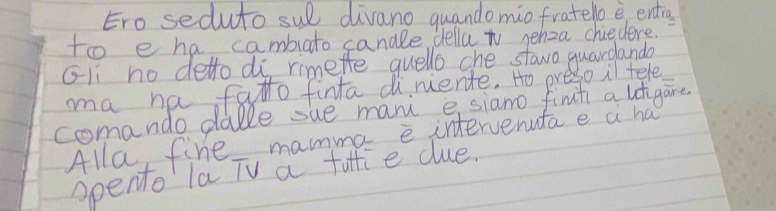 Ero seduto sul divano quando mio fratello è entra
to e ha cambiato canale della tv senza chiedere.
Gli ho detto di rimette quello che stavo guardando
ma ha fatto finta di niente. Ho preso il tele
comando dalle sue mani e siamo finiti a litigare.
Alla fine mamma è intervenuta e ci ha
spento la TV a tutti e due.